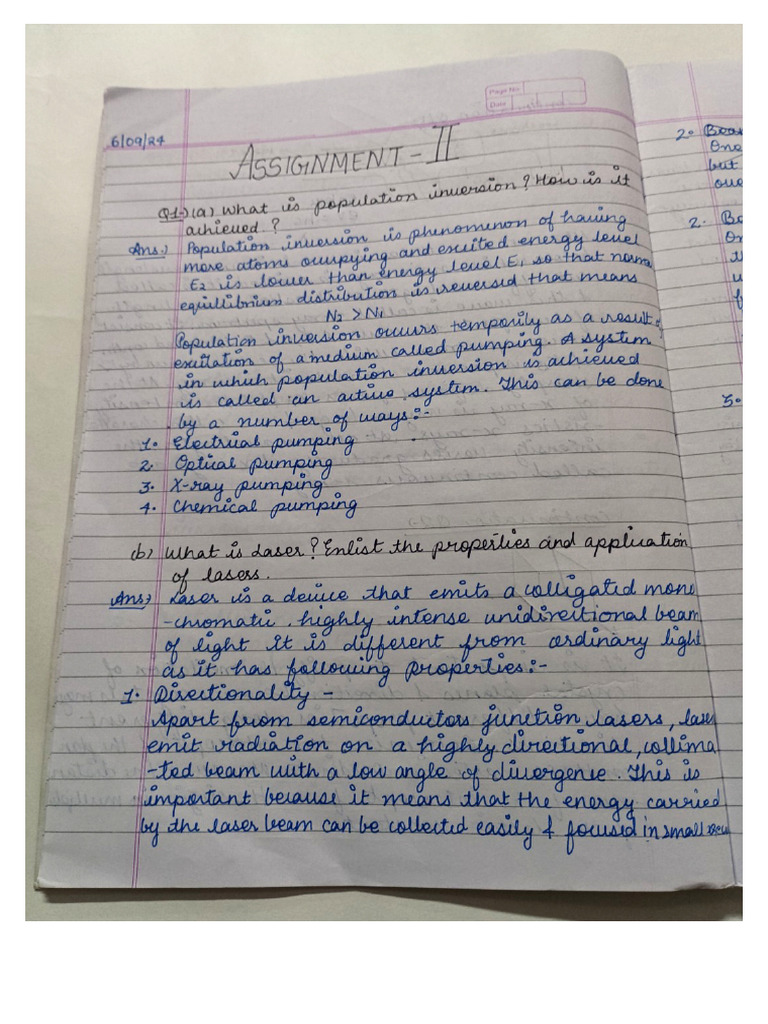 Page No
Date
6/09/24
ASSIGNMENT - II
Q1→(a) What is population inversion? How is it
achieved?
Ans.) Population inversion is phenomenon of having
more atoms occupying and excited energy level
E2 is lower than energy level E1 so that norma
equillibrium distribution is reversed that means
N2 > N1
Population inversion occurs temporily as a result of
excitation of a medium called pumping. A system
in which population inversion is achieved
is called an active system. This can be done
by a number of ways:-
1. Electrical pumping
2. Optical pumping
3. X-ray pumping
4. Chemical pumping
(b) What is Laser? Enlist the properties and application
of lasers.
Ans) Laser is a device that emits a colligated mono
-chromatic, highly intense unidirectional beam
of light it is different from ordinary light
as it has following properties:-
1. Directionality -
Apart from semiconductors junction, lasers, laser
emit radiation on a highly directional, collima
-ted beam with a low angle of divergence. This is
important because it means that the energy carried
by the laser beam can be collected easily & focused in small
2.
One
but
2. Bo
On
3.